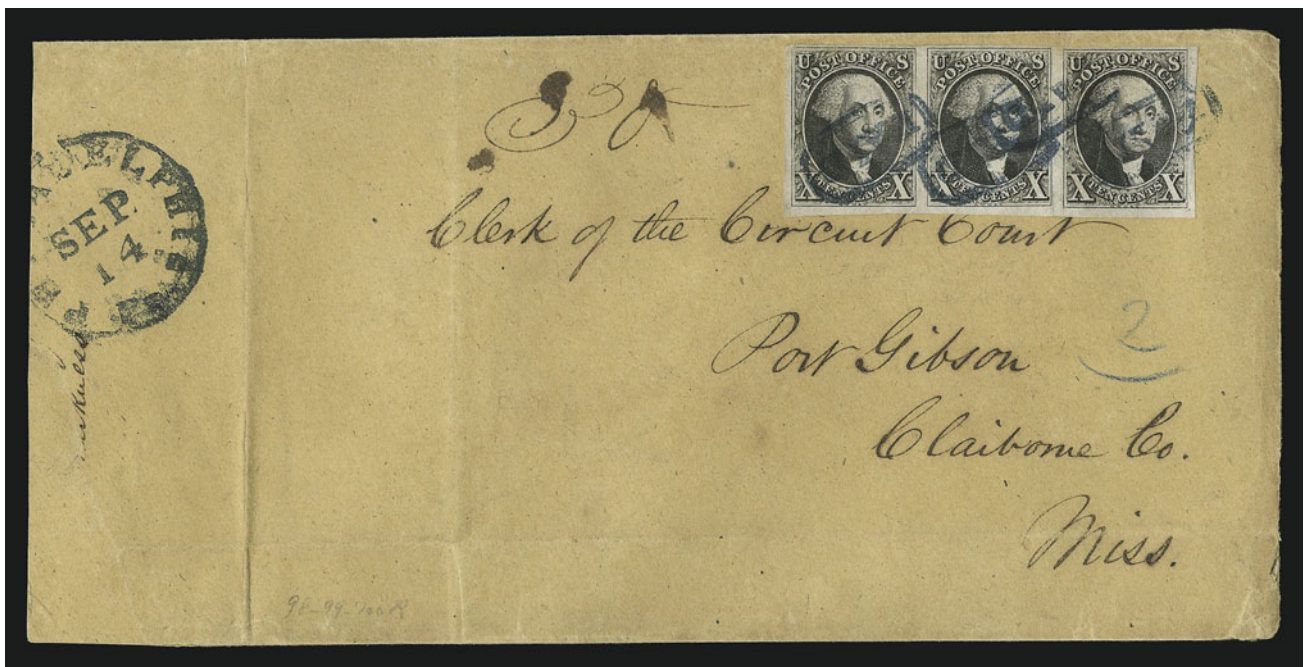 U POST OFFICE S
X TEN CENTS X
U POST OFFICE S
X TEN CENTS X
U POST OFFICE S
X TEN CENTS X
PHILADELPHIA Pa
SEP
14
Clerk of the Circuit Court
Port Gibson
2
Claiborne Co.
Miss.
98-99-100R